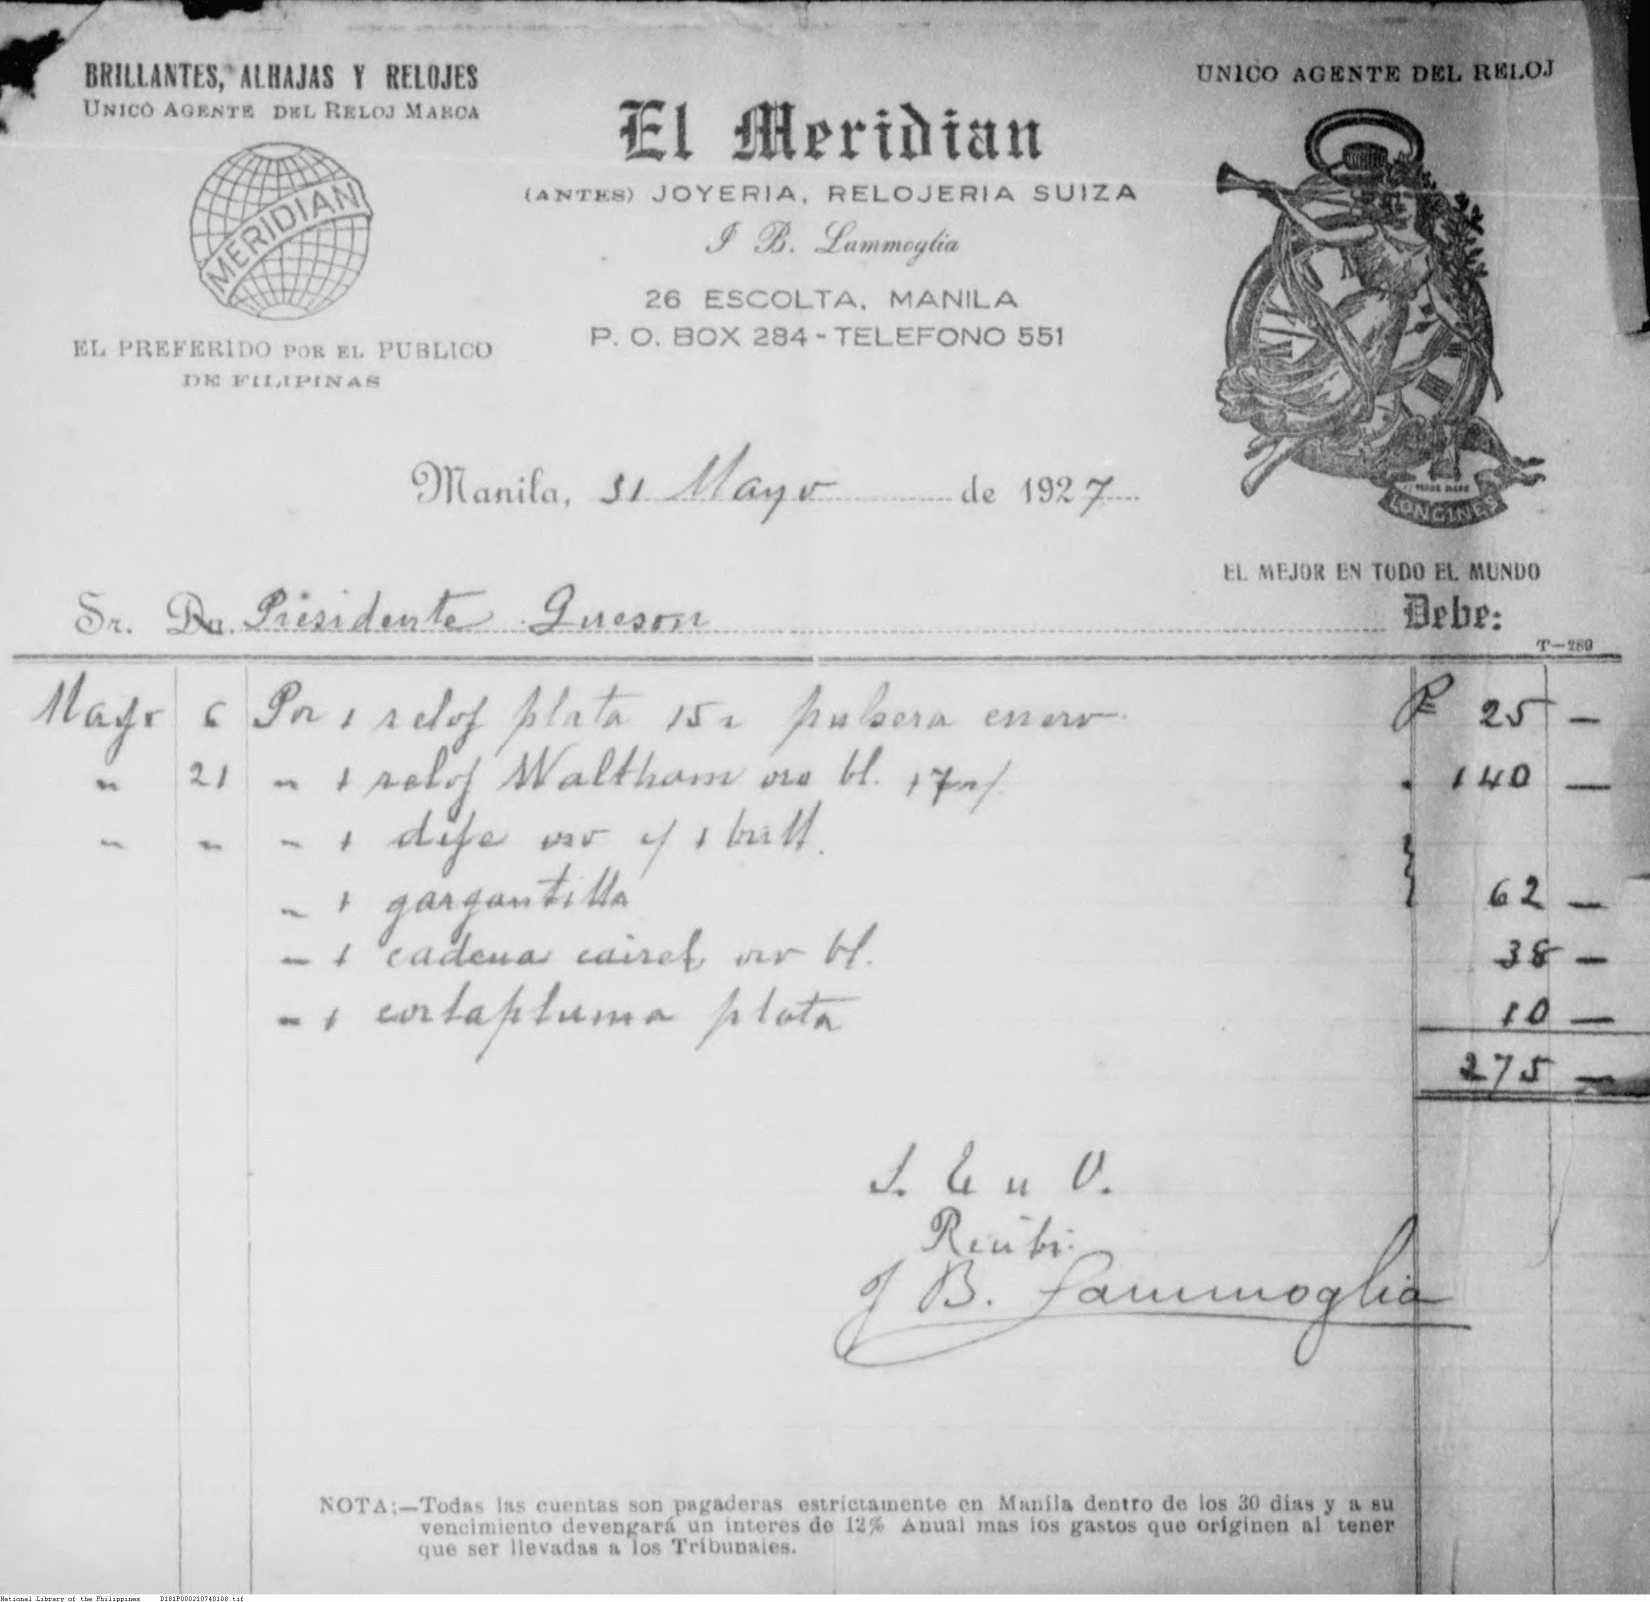 BRILLANTES, ALHAJAS Y RELOJES
UNICO AGENTE DEL RELOJ MARCA
MERIDIAN
EL PREFERIDO POR EL PUBLICO
DE FILIPINAS
El Meridian
(ANTES) JOYERIA, RELOJERIA SUIZA
J B. Lammoglia
26 ESCOLTA, MANILA
P. O. BOX 284 - TELEFONO 551
UNICO AGENTE DEL RELOJ
LONGINES
EL MEJOR EN TODO EL MUNDO
Manila, 31 Mayo de 1927
Sr. Da. Presidente Queson Debe:
T-289
Mayo 6 Por 1 reloj plata 15 pulsera ₱ 25 —
" 21 " 1 reloj Waltham oro bl. 17 " 140 —
" " " 1 dije oro y 1 brill.
" 1 gargantilla 62 —
" 1 cadena oro bl. 38 —
" 1 cortapluma plata 10 —
275 —
S. E u O.
Recibi
J B. Lammoglia
NOTA:—Todas las cuentas son pagaderas estrictamente en Manila dentro de los 30 dias y a su
vencimiento devengará un interes de 12% Anual mas los gastos que originen al tener
que ser llevadas a los Tribunales.
National Library of the Philippines D181P000210740108.tif